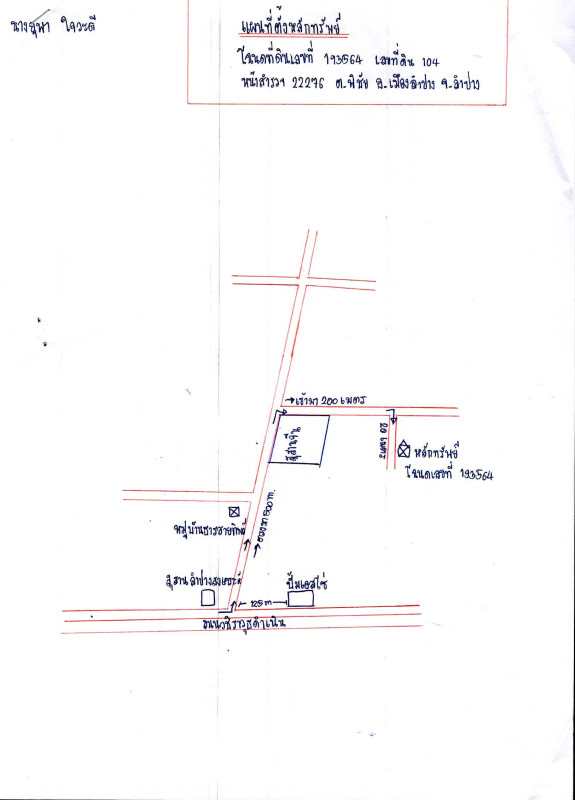 นางสุพา ใจวะดี
แผนที่ตั้งหลักทรัพย์
โฉนดที่ดินเลขที่ 193564 เลขที่ดิน 104
หน้าสำรวจ 22276 ต.พิชัย อ.เมืองลำปาง จ.ลำปาง
เข้ามา 200 เมตร
สุสานจีน
20 เมตร
หลักทรัพย์
โฉนดเลขที่ 193564
ตรงมา 500 m.
หมู่บ้านธารชายทิพย์
สุสานลำปางสงเคราะห์
ปั๊มเอสโซ่
125 m
ถนนวชิราวุธดำเนิน